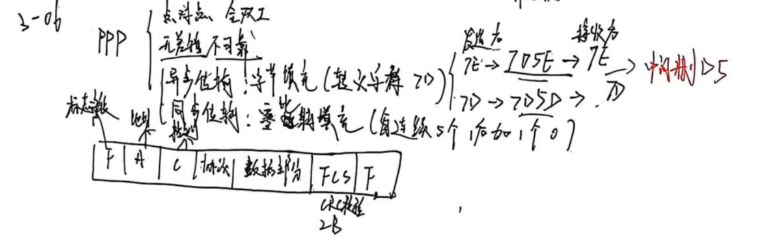 3-06
PPP
点对点、全双工
无差错 不可靠
异步传输：字节填充（转义字符 7D）
同步传输：零比特填充（每连续5个1后加1个0）
发送方 接收方
7E → 7D5E → 7E
7D → 7D5D → 7D
F A C 协议 数据部分 FCS F
地址
控制
CRC校验
2B